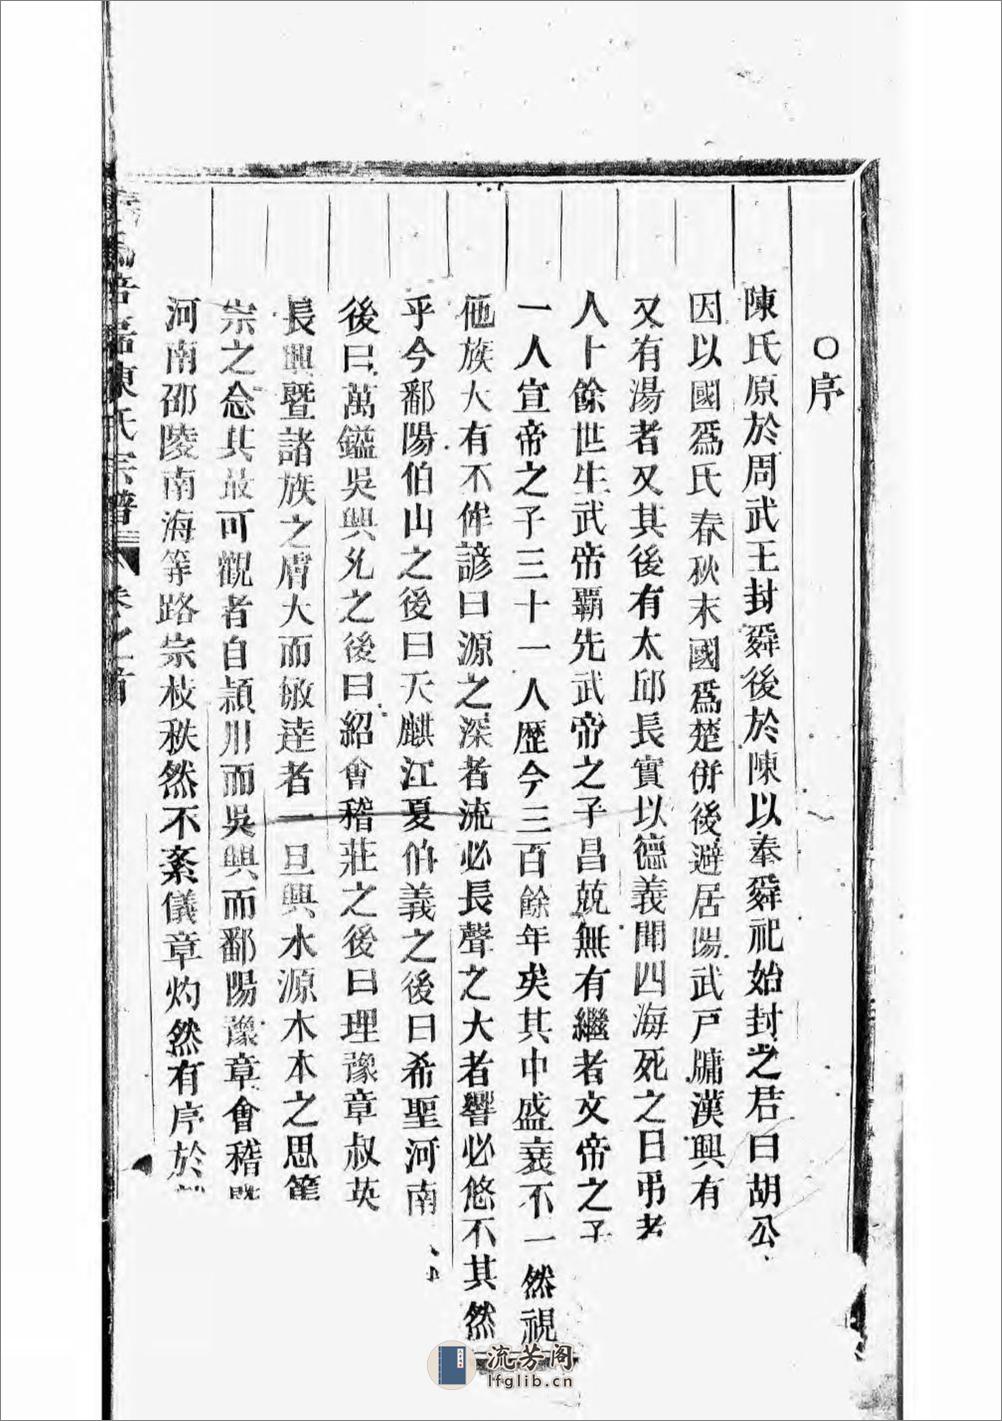 ○序
陳氏原於周武王封舜後於陳以奉舜祀始封之君曰胡公
因以國爲氏春秋末國爲楚併後避居陽武戸牖漢興有
又有湯者又其後有太邱長實以德義聞四海死之日弔者
人十餘世生武帝覇先武帝之子昌兢無有繼者文帝之子
一人宣帝之子三十一人歷今三百餘年矣其中盛衰不一然視
他族大有不侔諺曰源之深者流必長聲之大者響必悠不其然
乎今鄱陽伯山之後曰天麒江夏伯義之後曰希聖河南
後曰萬鎰吳興允之後曰紹會稽莊之後曰理豫章叔英
長興暨諸族之膚大而敏達者一旦興水源木本之思篤
宗之念其最可觀者自潁川而吳興而鄱陽豫章會稽
河南邵陵南海等路宗枝秩然不紊儀章灼然有序於
陳氏宗譜 卷之首
流芳阁
lfglib.cn